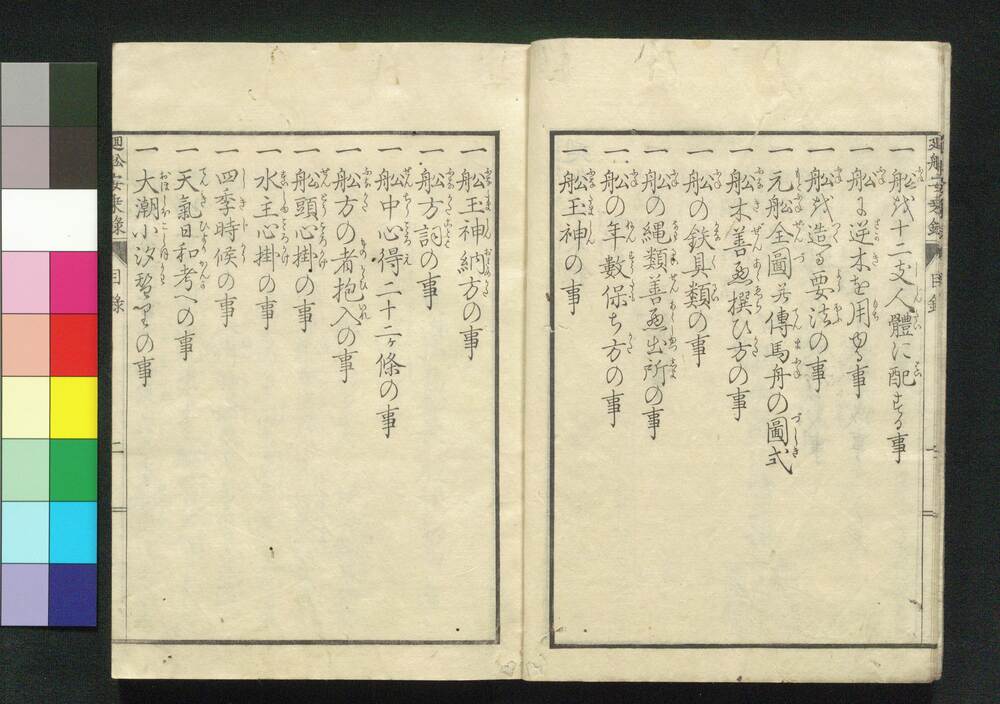 廻船安乗録
目録
一 舩を十二支人體に配する事
一 舩に逆木を用ゆる事
一 舩を造る要法の事
一 元舩全圖並傳馬舟の圖式
一 舩木善悪撰ひ方の事
一 舩の鉄具類の事
一 舩の縄類善悪出所の事
一 舩の年數保ち方の事
一 舩玉神の事
一 舩玉神納方の事
一 舩方詞の事
一 舩中心得二十二ヶ條の事
一 舩方の者抱入の事
一 舩頭心掛の事
一 水主心掛の事
一 四季時候の事
一 天氣日和考への事
一 大潮小汐の事
廻舩安乗録
目録
二